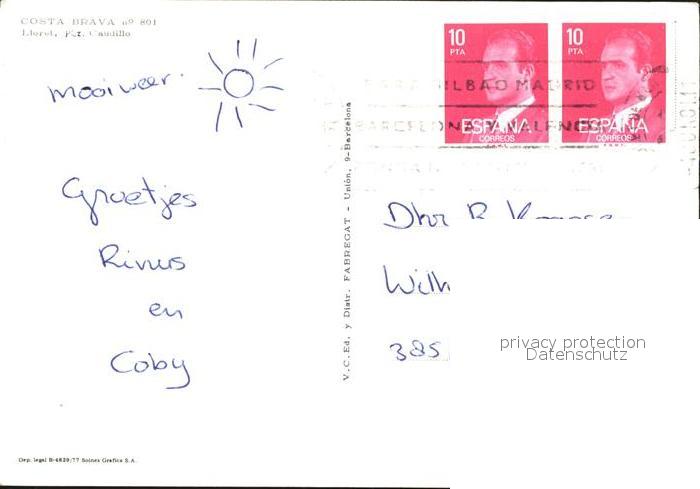 COSTA BRAVA nº 801
Lloret, Plz. Caudillo
mooi weer.
Groetjes
Rinus
en
Coby
Dep. legal B-4829/77 Soinex Grafics S.A.
V. C. Ed. y Distr. FABREGAT - Unión, 9-Barcelona
10
PTA
ESPAÑA
CORREOS
10
PTA
ESPAÑA
CORREOS
BILBAO MADRID
BARCELONA VALENC
Dhr R
Wilh
385
privacy protection
Datenschutz